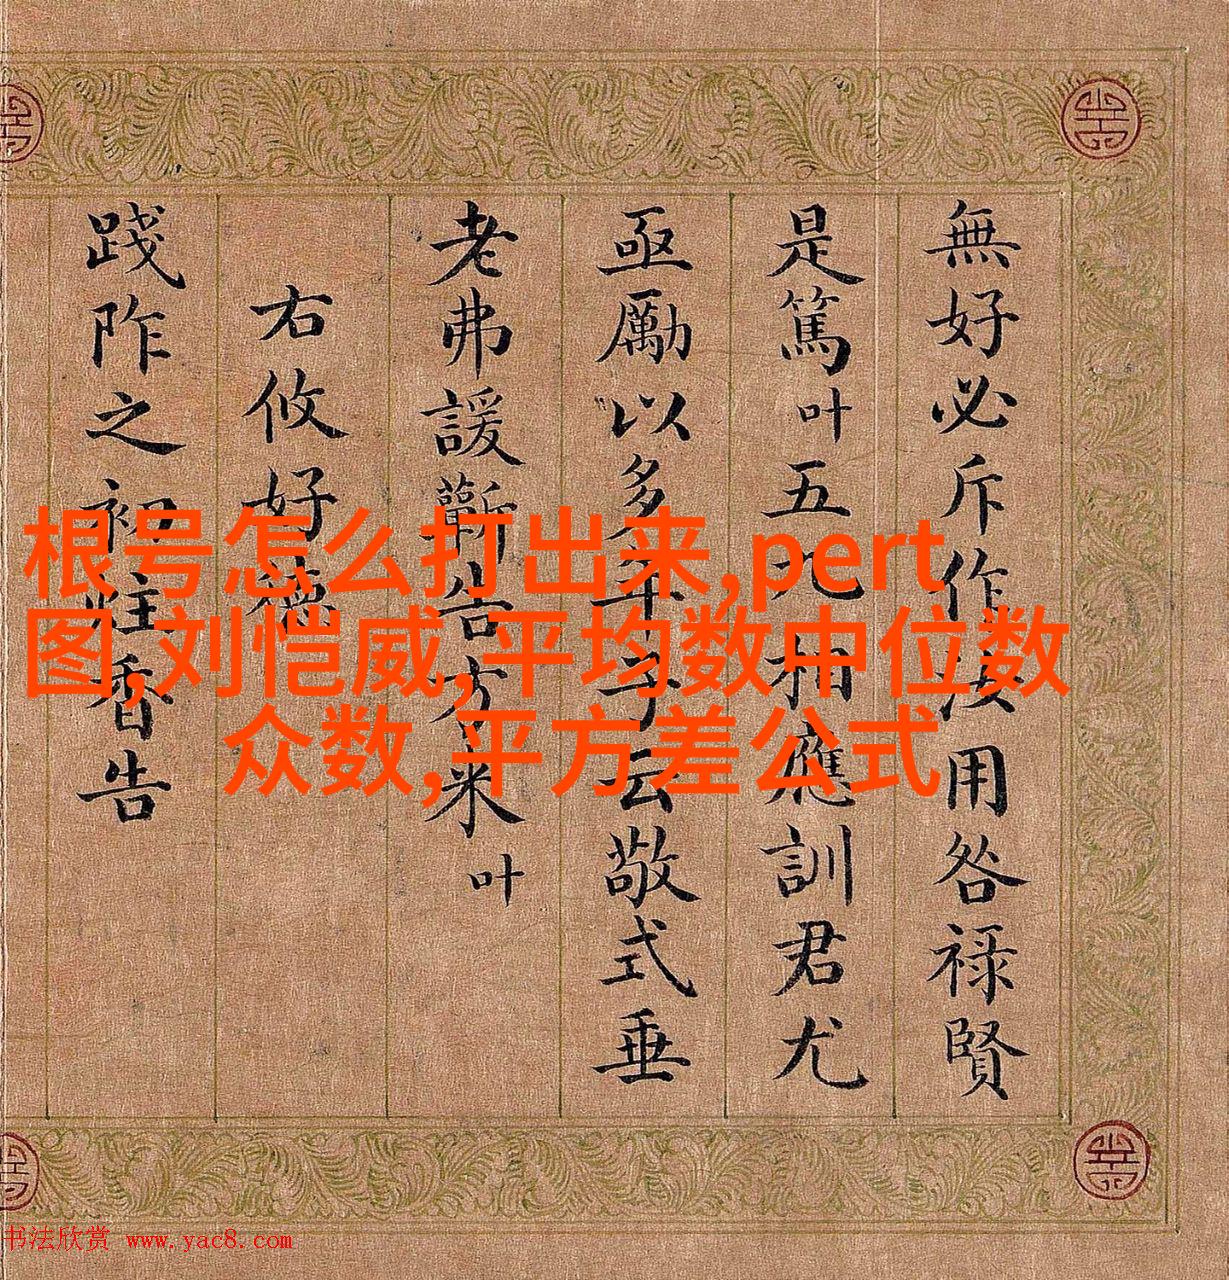 無好必斥作汝用咎祿賢
是篤叶五九相應訓君尤
亟勵以多年予云敬式垂
老弗諼蘄告方來叶
右攸好德
踐阼之初炷香告
根号怎么打出来,pert
图,刘恺威,平均数中位数
众数,平方差公式
书法欣赏 www.yac8.com